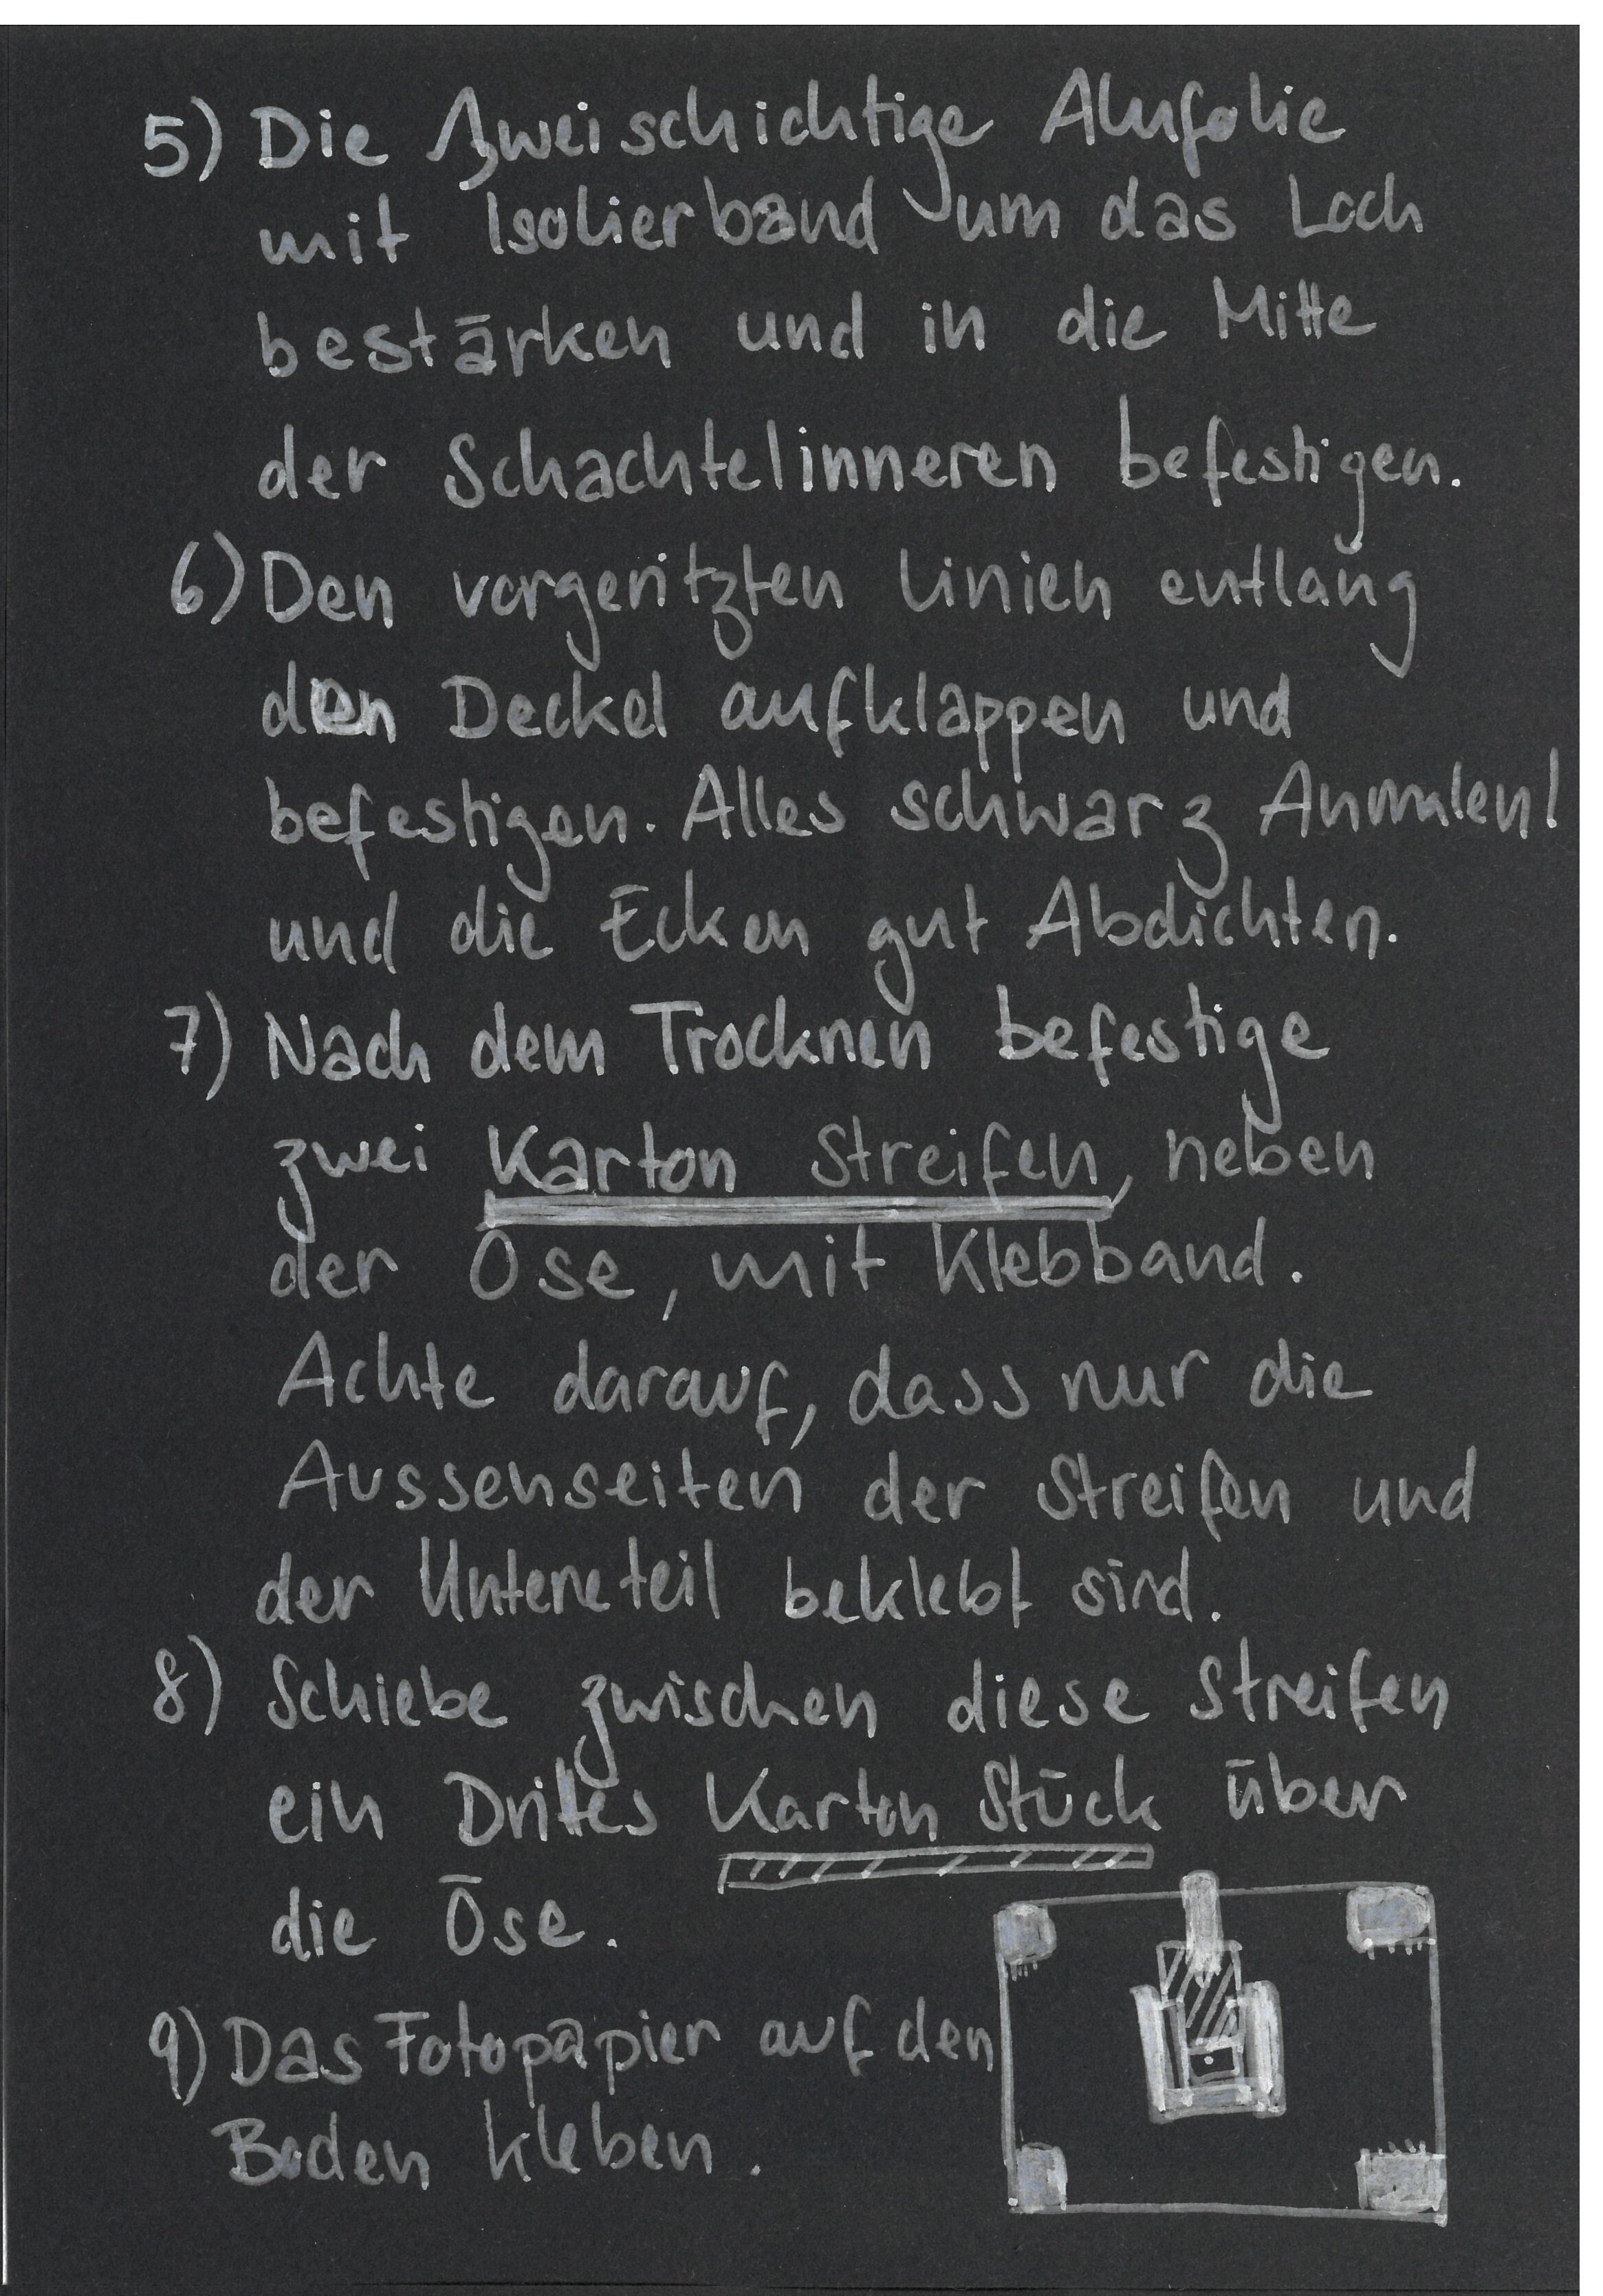 5) Die zweischichtige Alufolie
mit Isolierband um das Loch
bestärken und in die Mitte
der Schachtelinneren befestigen.
6) Den vorgeritzten Linien entlang
den Deckel aufklappen und
befestigen. Alles schwarz Anmalen!
und die Ecken gut Abdichten.
7) Nach dem Trocknen befestige
zwei Karton Streifen, neben
der Öse, mit Klebband.
Achte darauf, dass nur die
Aussenseiten der Streifen und
der Untereteil beklebt sind.
8) Schiebe zwischen diese Streifen
ein Drittes Karton Stück über
die Öse.
9) Das Fotopapier auf den
Boden kleben.